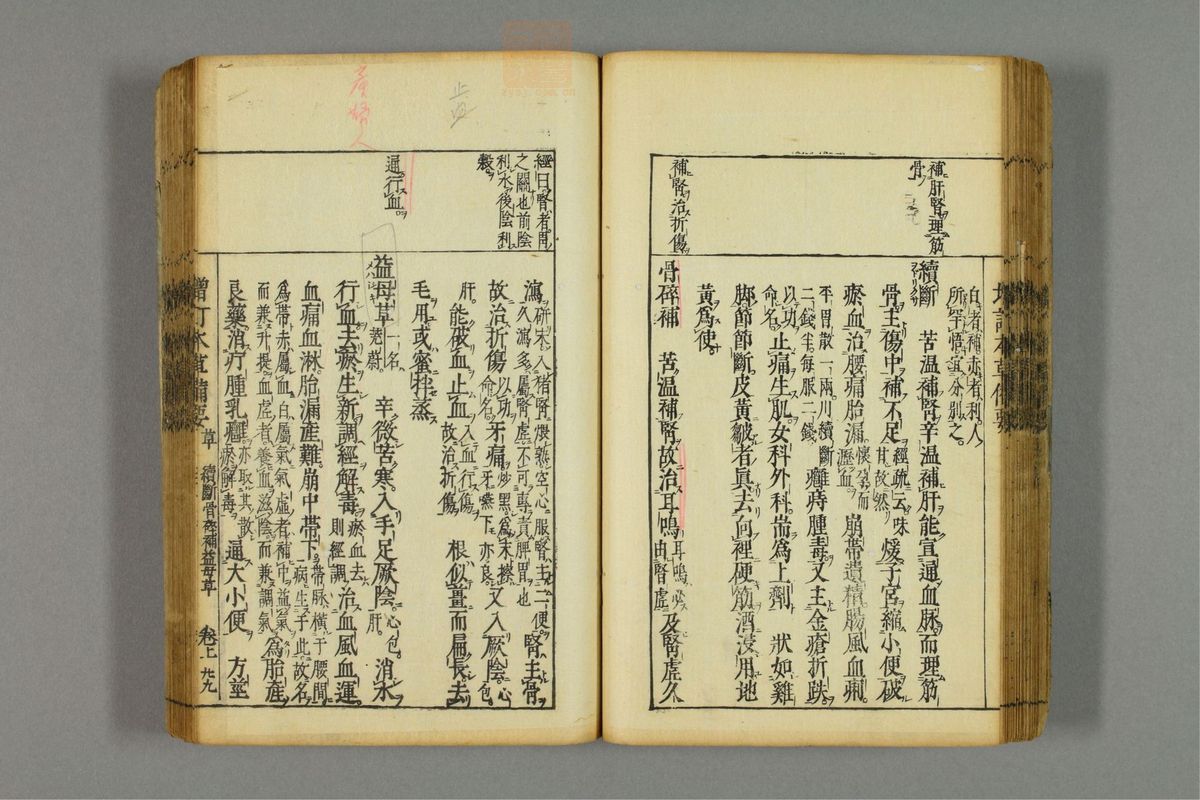 補肝腎理筋
骨
白者補赤者利人
所罕當宜分別之
續斷 苦温補腎辛温補肝能宣通血脉而理筋
骨主傷中補不足經疏云味其故然煖子宮縮小便破
瘀血治腰痛胎漏懷孕而瀝血崩帶遺精腸風血痢
平胃散一兩川續斷二錢半每服二錢癰痔腫毒又主金瘡折跌
以功命名止痛生肌女科外科耑為上劑 狀如雞
脚節節斷皮黃皺者眞去向裡硬筋酒浸用地
黃為使
補腎治折傷
骨碎補 苦温補腎故治耳鳴耳鳴必由腎虛及腎虛久
經曰腎者胃
之關也前陰
利水後陰利
穀
瀉研末入猪腎煨熟空心服腎主二便久瀉多屬腎虛不可專責脾胃也腎主骨
故治折傷以功命名牙痛炒黑為末擦牙嚥下亦良又入厥陰心包
肝能破血止血入血行傷故治折傷根似薑而扁長去
毛用或蜜拌蒸
通行血
益母草一名茺蔚 辛微苦寒入手足厥陰心包肝消水
行血去瘀生新調經解毒瘀血去則經調治血風血運
血痛血淋胎漏産難崩中帶下帶脉橫于腰間病生于此故名
為帶赤屬血白屬氣氣虛者補中益氣而兼升提血虛者養血滋陰而兼調氣為胎産
良藥消疔腫乳癰亦取其散瘀解毒通大小便 方莖
增訂本草備要 草 續斷骨碎補益母草 卷上 九九
增訂本草備要
産婦人
止血